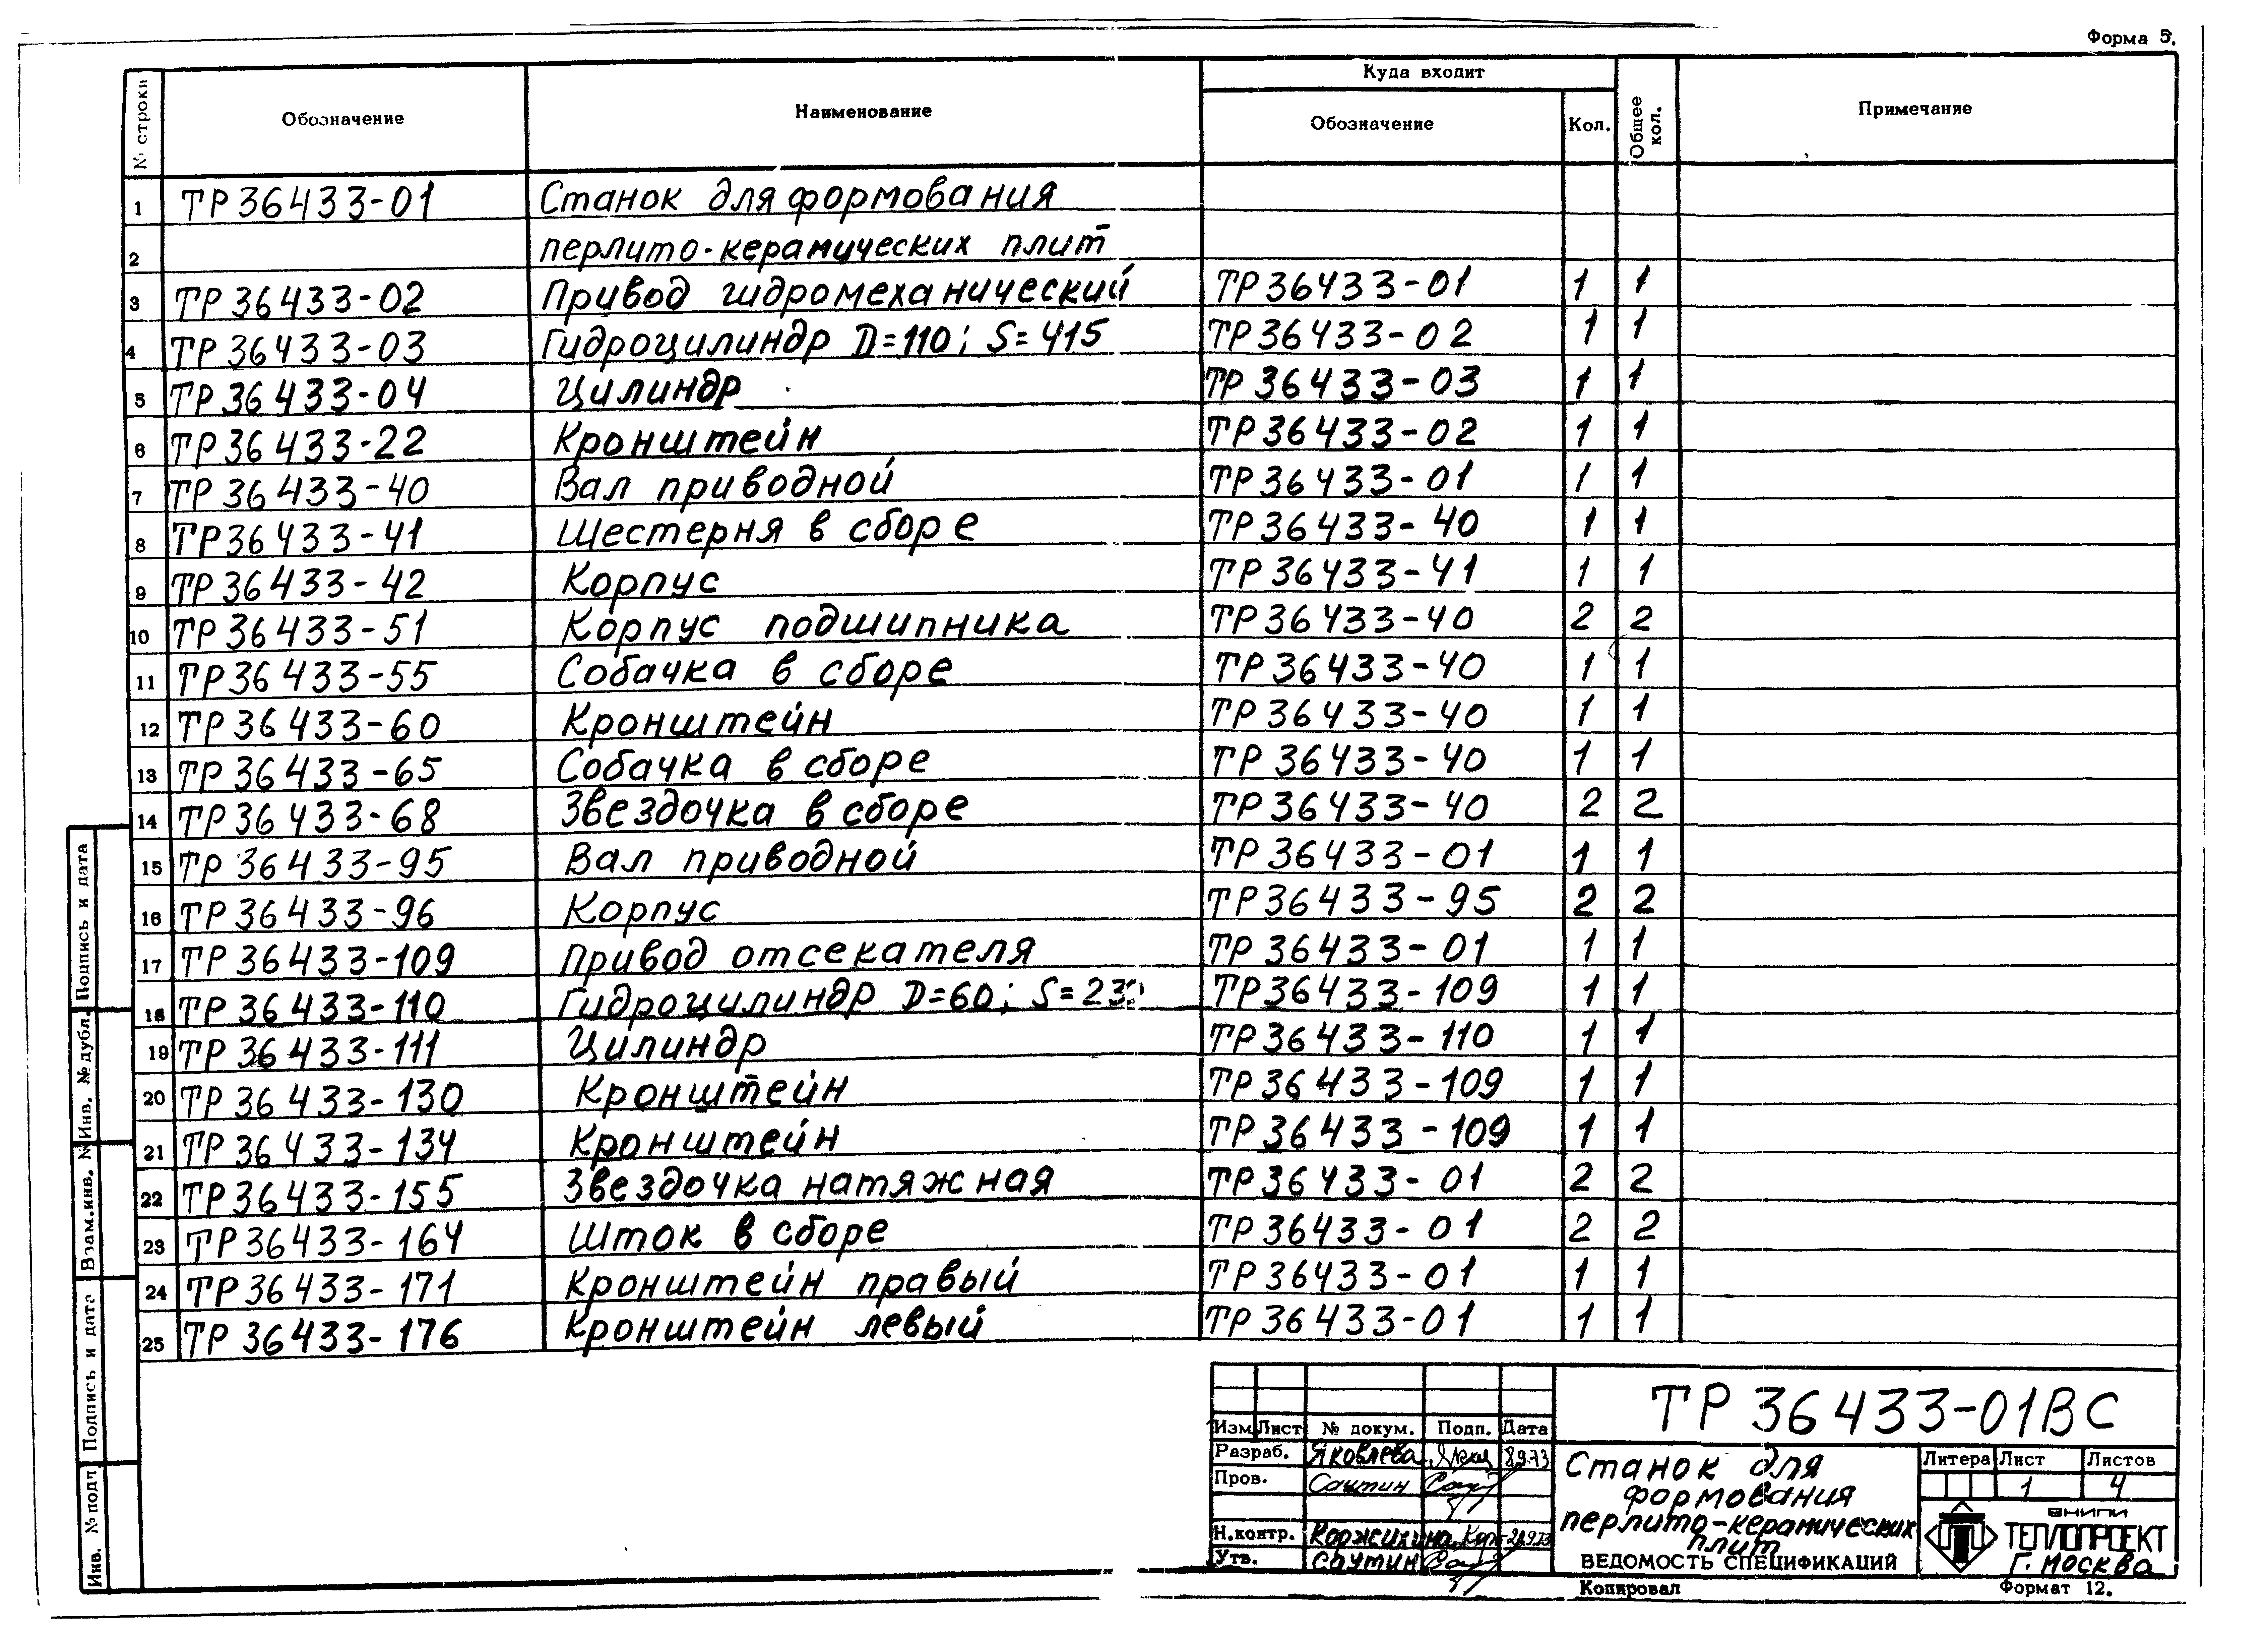 Форма 5.
№ строки Обозначение Наименование Куда входит Общее кол. Примечание
Обозначение Кол.
1 ТР36433-01 Станок для формования
2 перлито-керамических плит
3 ТР36433-02 Привод гидромеханический ТР36433-01 1 1
4 ТР36433-03 Гидроцилиндр D=110; S=415 ТР36433-02 1 1
5 ТР36433-04 Цилиндр ТР36433-03 1 1
6 ТР36433-22 Кронштейн ТР36433-02 1 1
7 ТР36433-40 Вал приводной ТР36433-01 1 1
8 ТР36433-41 Шестерня в сборе ТР36433-40 1 1
9 ТР36433-42 Корпус ТР36433-41 1 1
10 ТР36433-51 Корпус подшипника ТР36433-40 2 2
11 ТР36433-55 Собачка в сборе ТР36433-40 1 1
12 ТР36433-60 Кронштейн ТР36433-40 1 1
13 ТР36433-65 Собачка в сборе ТР36433-40 1 1
14 ТР36433-68 Звездочка в сборе ТР36433-40 2 2
15 ТР36433-95 Вал приводной ТР36433-01 1 1
16 ТР36433-96 Корпус ТР36433-95 2 2
17 ТР36433-109 Привод отсекателя ТР36433-01 1 1
18 ТР36433-110 Гидроцилиндр D=60; ТР36433-109 1 1
19 ТР36433-111 Цилиндр ТР36433-110 1 1
20 ТР36433-130 Кронштейн ТР36433-109 1 1
21 ТР36433-134 Кронштейн ТР36433-109 1 1
22 ТР36433-155 Звездочка натяжная ТР36433-01 2 2
23 ТР36433-164 Шток в сборе ТР36433-01 2 2
24 ТР36433-171 Кронштейн правый ТР36433-01 1 1
25 ТР36433-176 Кронштейн левый ТР36433-01 1 1
Подпись и дата
Инв. № дубл.
Взам.инв. №
Подпись и дата
Инв. № подл
ТР36433-01ВС
Изм Лист № докум. Подп. Дата
Разраб. Яковлева 8.9.73
Пров. Саутин
Н.контр. Коржихина
Утв. Саутин
Станок для
формования
перлито-керамических
плит
ВЕДОМОСТЬ СПЕЦИФИКАЦИЙ
Литера Лист Листов
1 4
ВНИПИ
ТЕПЛОПРОЕКТ
г. Москва
Копировал Формат 12.